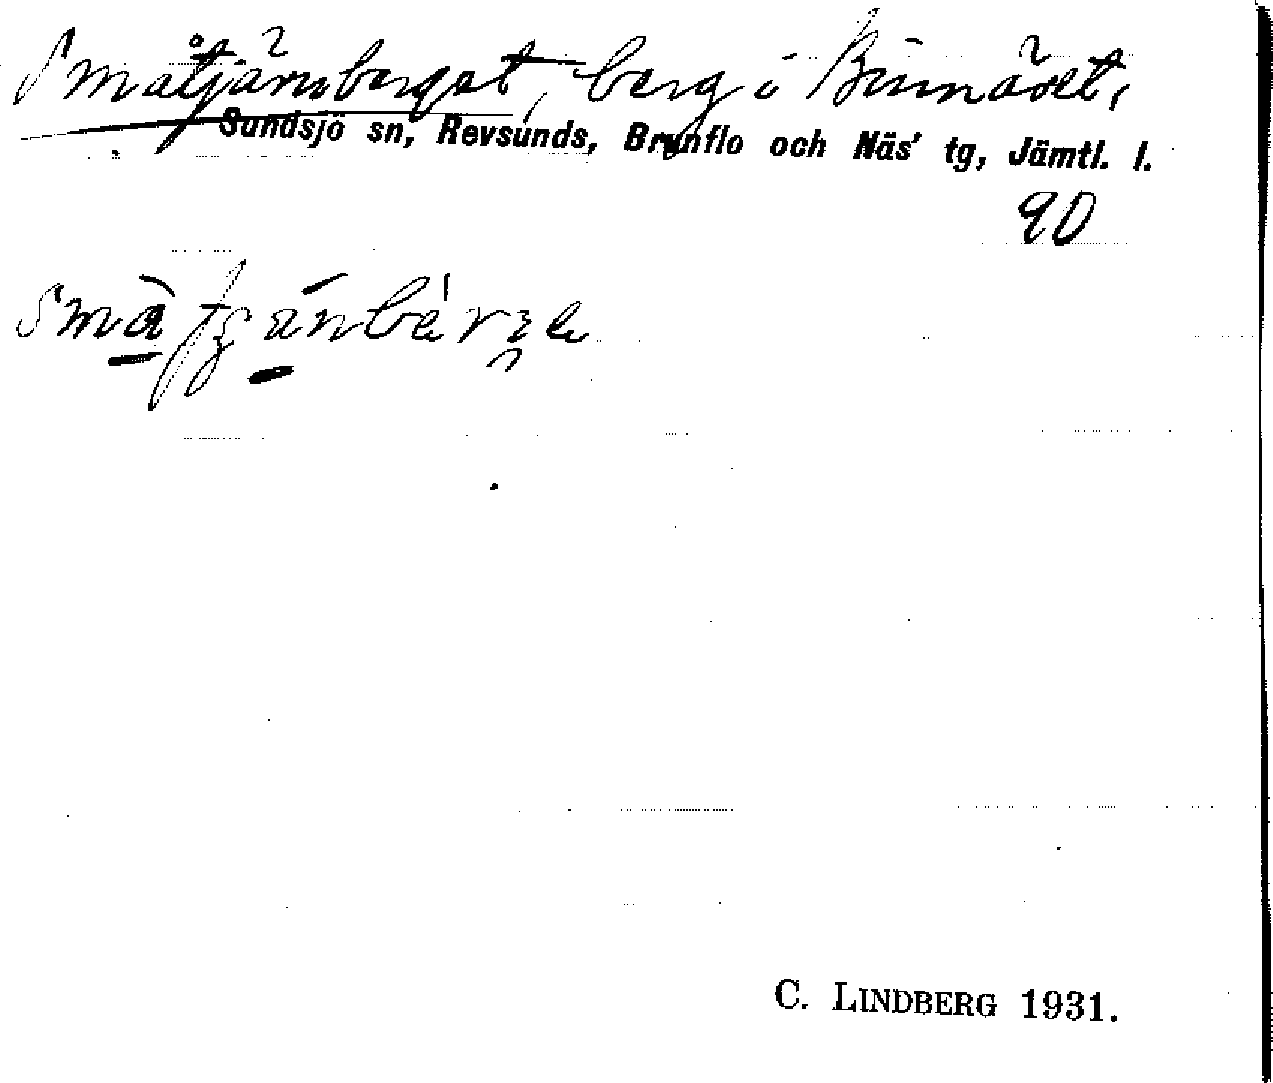 Småtjärnberget, berg i Binnäset,
Sundsjö sn, Revsunds, Brunflo och Näs' tg, Jämtl. l.
90
C. LINDBERG 1931.